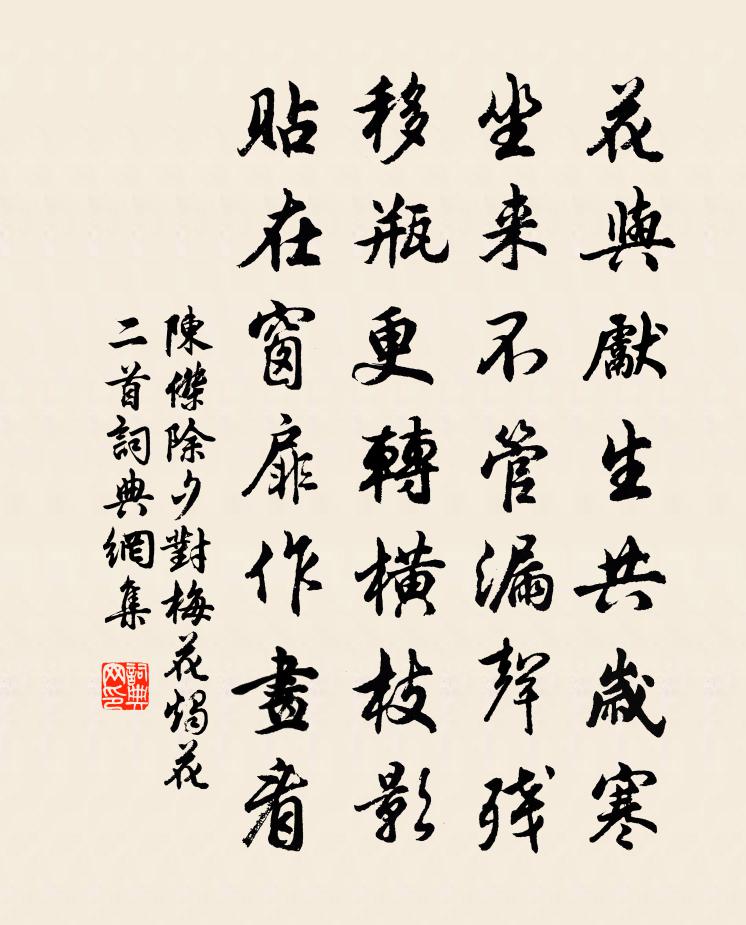 花與獻生共歲寒
坐来不管漏聲殘
移瓶更轉橫枝影
貼在窗扉作畫看
陳傑除夕對梅花燭花
二首詞典網集
詞典網印